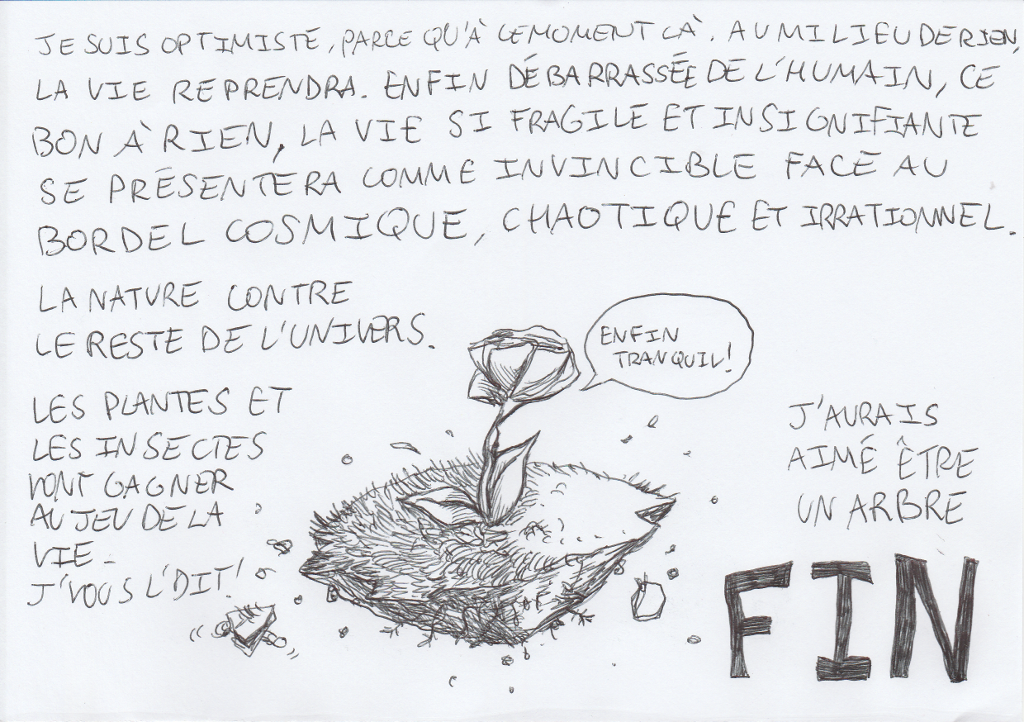 JE SUIS OPTIMISTE, PARCE QU'À CE MOMENT LÀ. AU MILIEU DE RIEN,
LA VIE REPRENDRA. ENFIN DÉBARRASSÉE DE L'HUMAIN, CE
BON À RIEN, LA VIE SI FRAGILE ET INSIGNIFIANTE
SE PRÉSENTERA COMME INVINCIBLE FACE AU
BORDEL COSMIQUE, CHAOTIQUE ET IRRATIONNEL.
LA NATURE CONTRE
LE RESTE DE L'UNIVERS.
ENFIN
TRANQUIL!
LES PLANTES ET
LES INSECTES
VONT GAGNER
AU JEU DE LA
VIE.
J'VOUS L'DIT!
J'AURAIS
AIMÉ ÊTRE
UN ARBRE
FIN